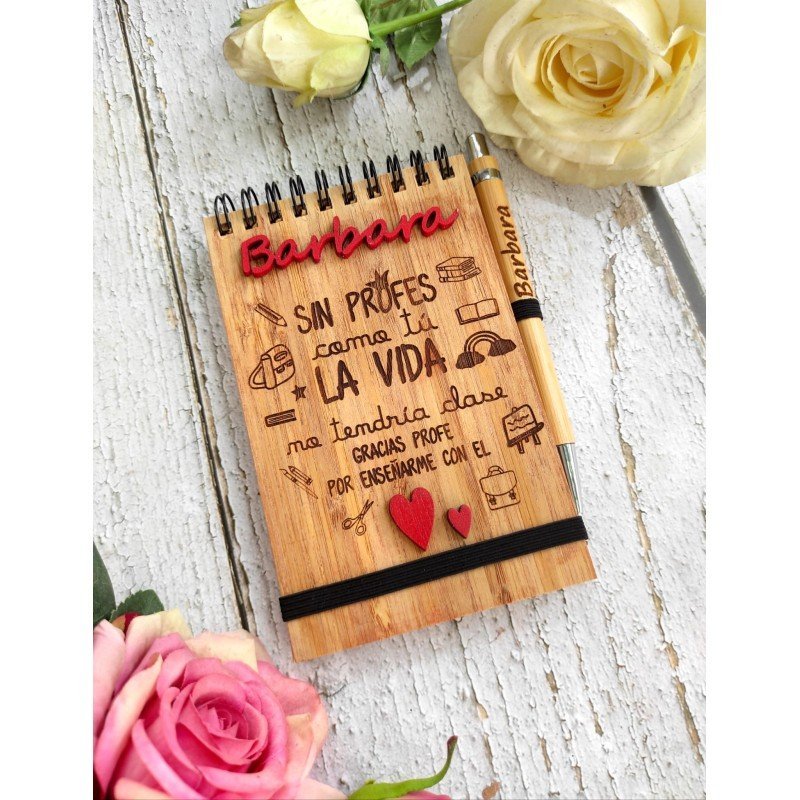 Barbara
SIN PROFES
como tú
LA VIDA
no tendría clase
GRACIAS PROFE
POR ENSEÑARME CON EL
Barbara